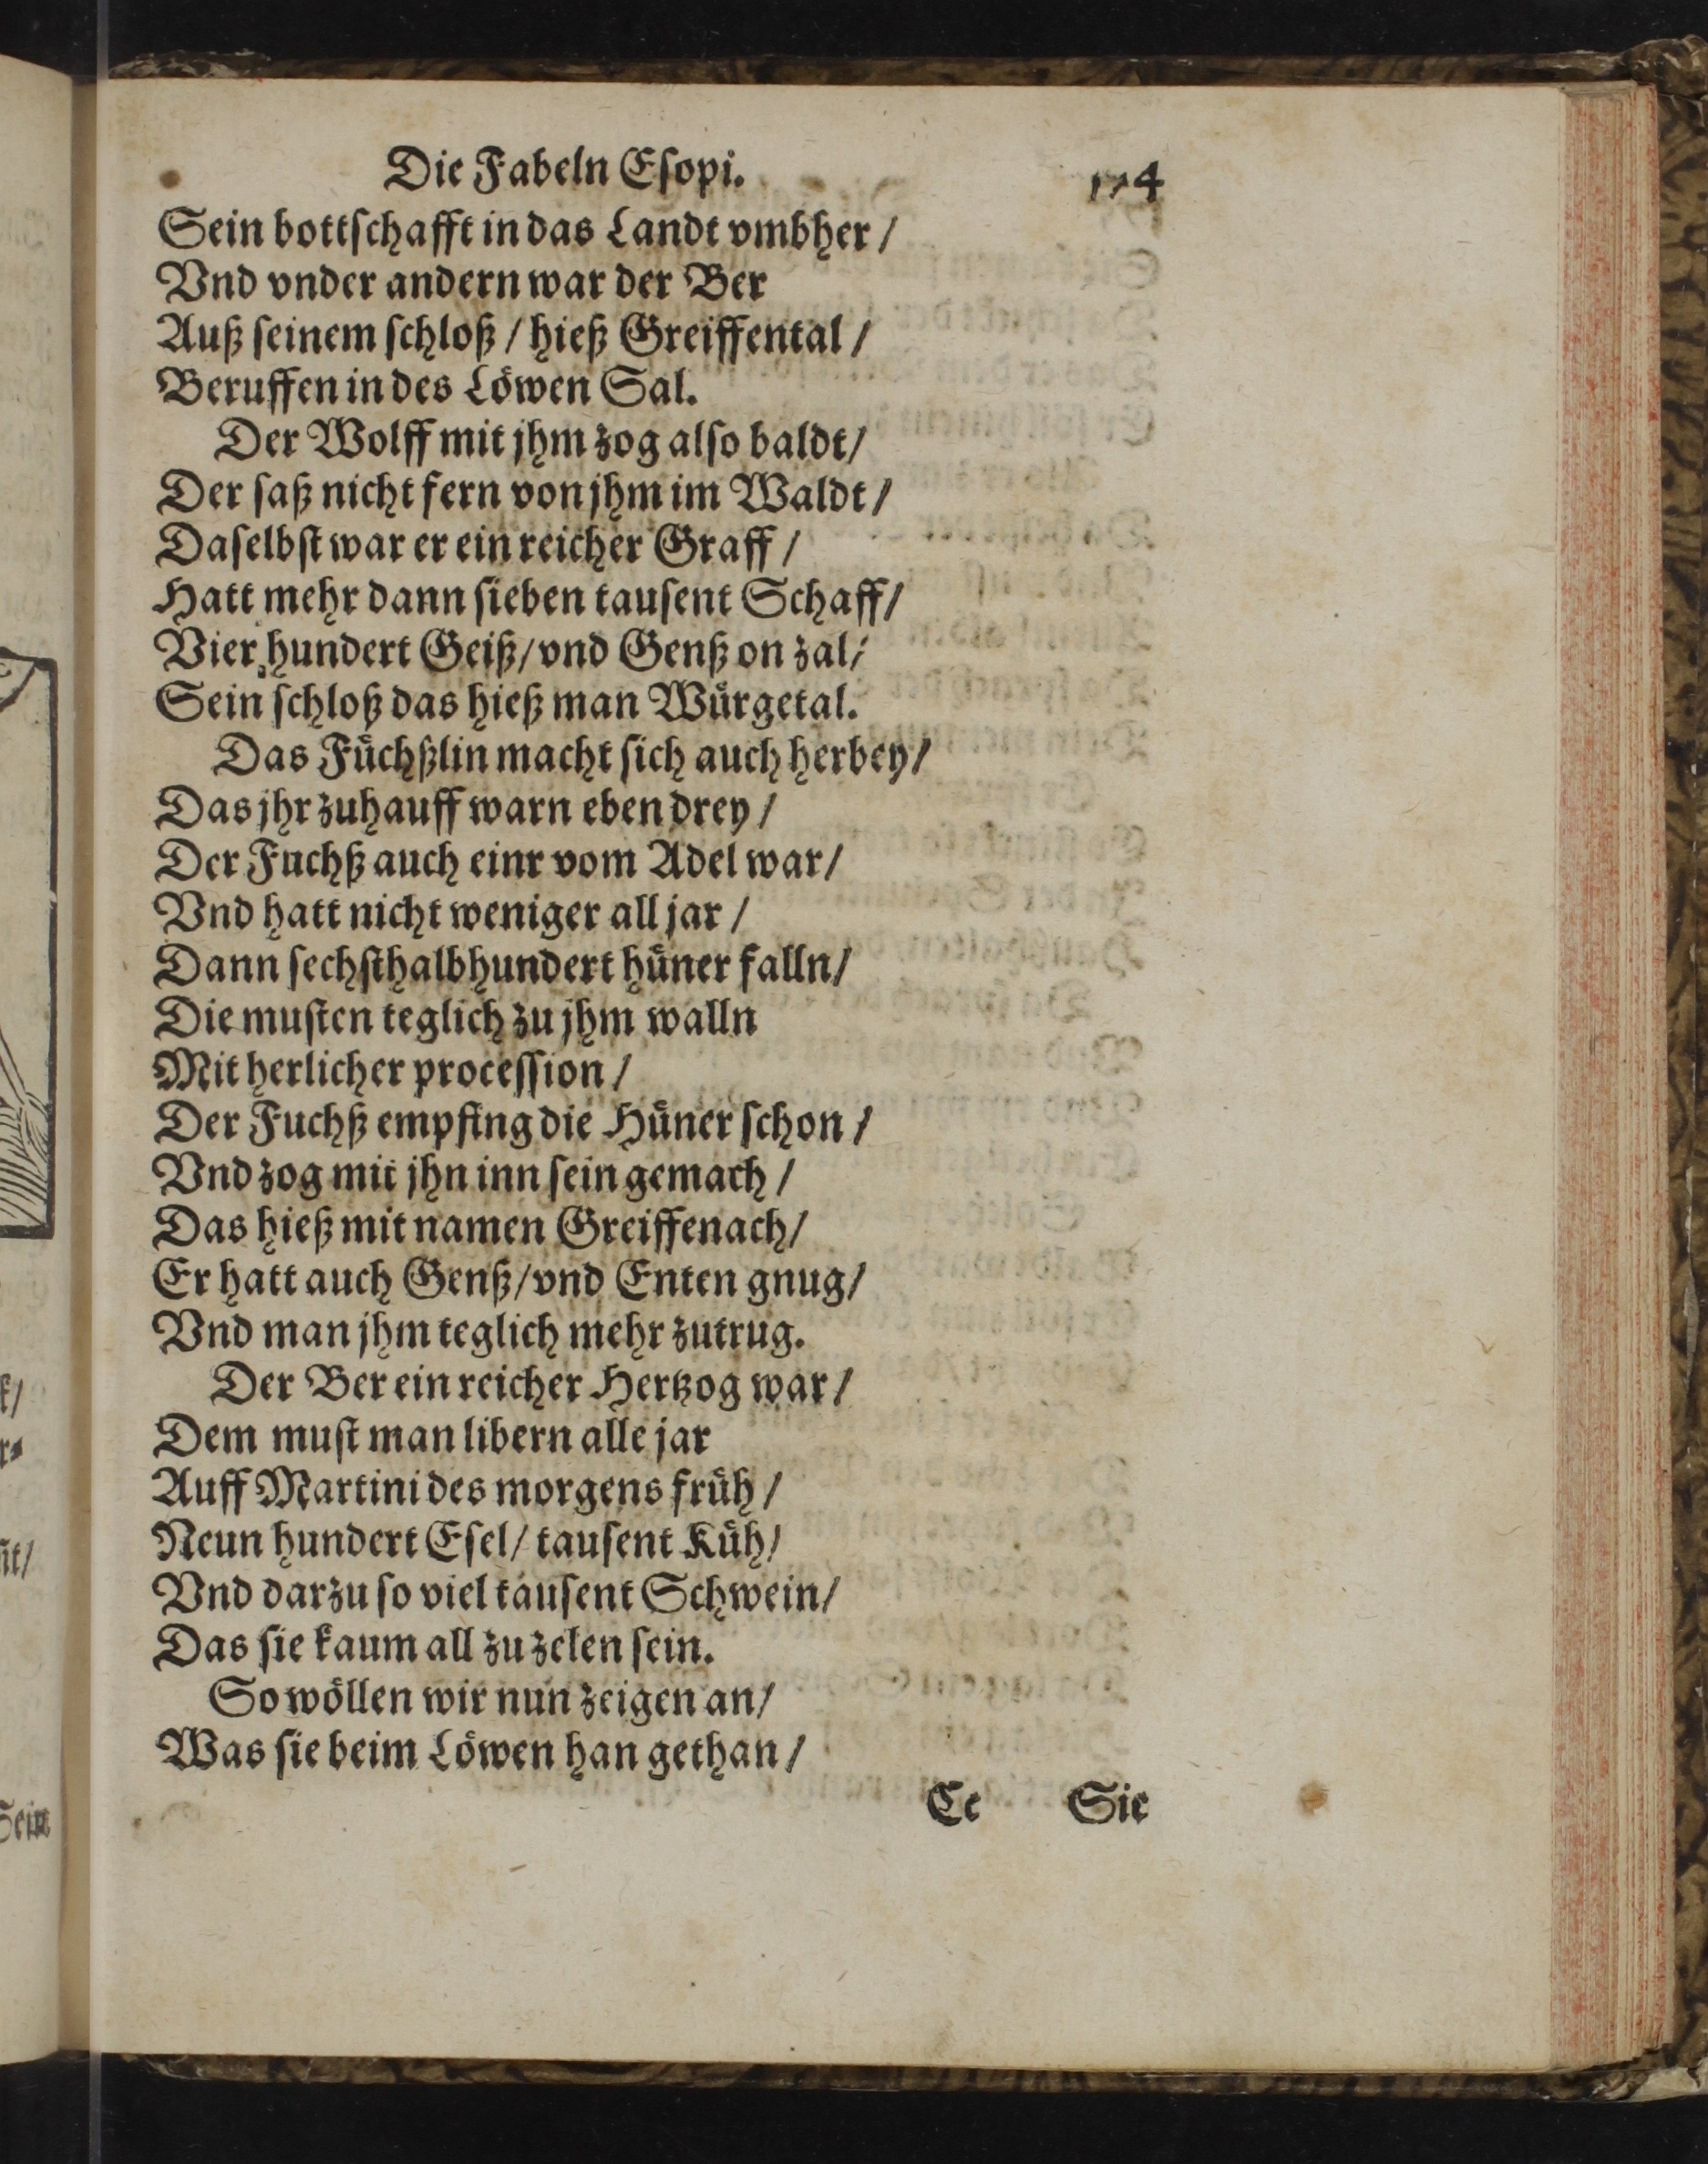 Die Fabeln Eſopi. 174
Sein bottſchafft in das Landt vmbher /
Vnd vnder andern war der Ber
Auß ſeinem ſchloß / hieß Greiffental /
Beruffen in des Löwen Sal.
Der Wolff mit jhm zog alſo baldt /
Der ſaß nicht fern von jhm im Waldt /
Daſelbſt war er ein reicher Graff /
Hatt mehr dann ſieben tauſent Schaff /
Vier hundert Geiß / vnd Genß on zal /
Sein ſchloß das hieß man Würgetal.
Das Füchßlin macht ſich auch herbey /
Das jhr zuhauff warn eben drey /
Der Fuchß auch einr vom Adel war /
Vnd hatt nicht weniger all jar /
Dann ſechſthalbhundert hüner falln /
Die muſten teglich zu jhm walln
Mit herlicher proceſſion /
Der Fuchß empfing die Hüner ſchon /
Vnd zog mit jhn inn ſein gemach /
Das hieß mit namen Greiffenach /
Er hatt auch Genß / vnd Enten gnug /
Vnd man jhm teglich mehr zutrug.
Der Ber ein reicher Hertzog war /
Dem muſt man libern alle jar
Auff Martini des morgens früh /
Neun hundert Eſel / tauſent Küh /
Vnd darzu ſo viel tauſent Schwein /
Das ſie kaum all zu zelen ſein.
So wöllen wir nun zeigen an /
Was ſie beim Löwen han gethan /
Cc Sie